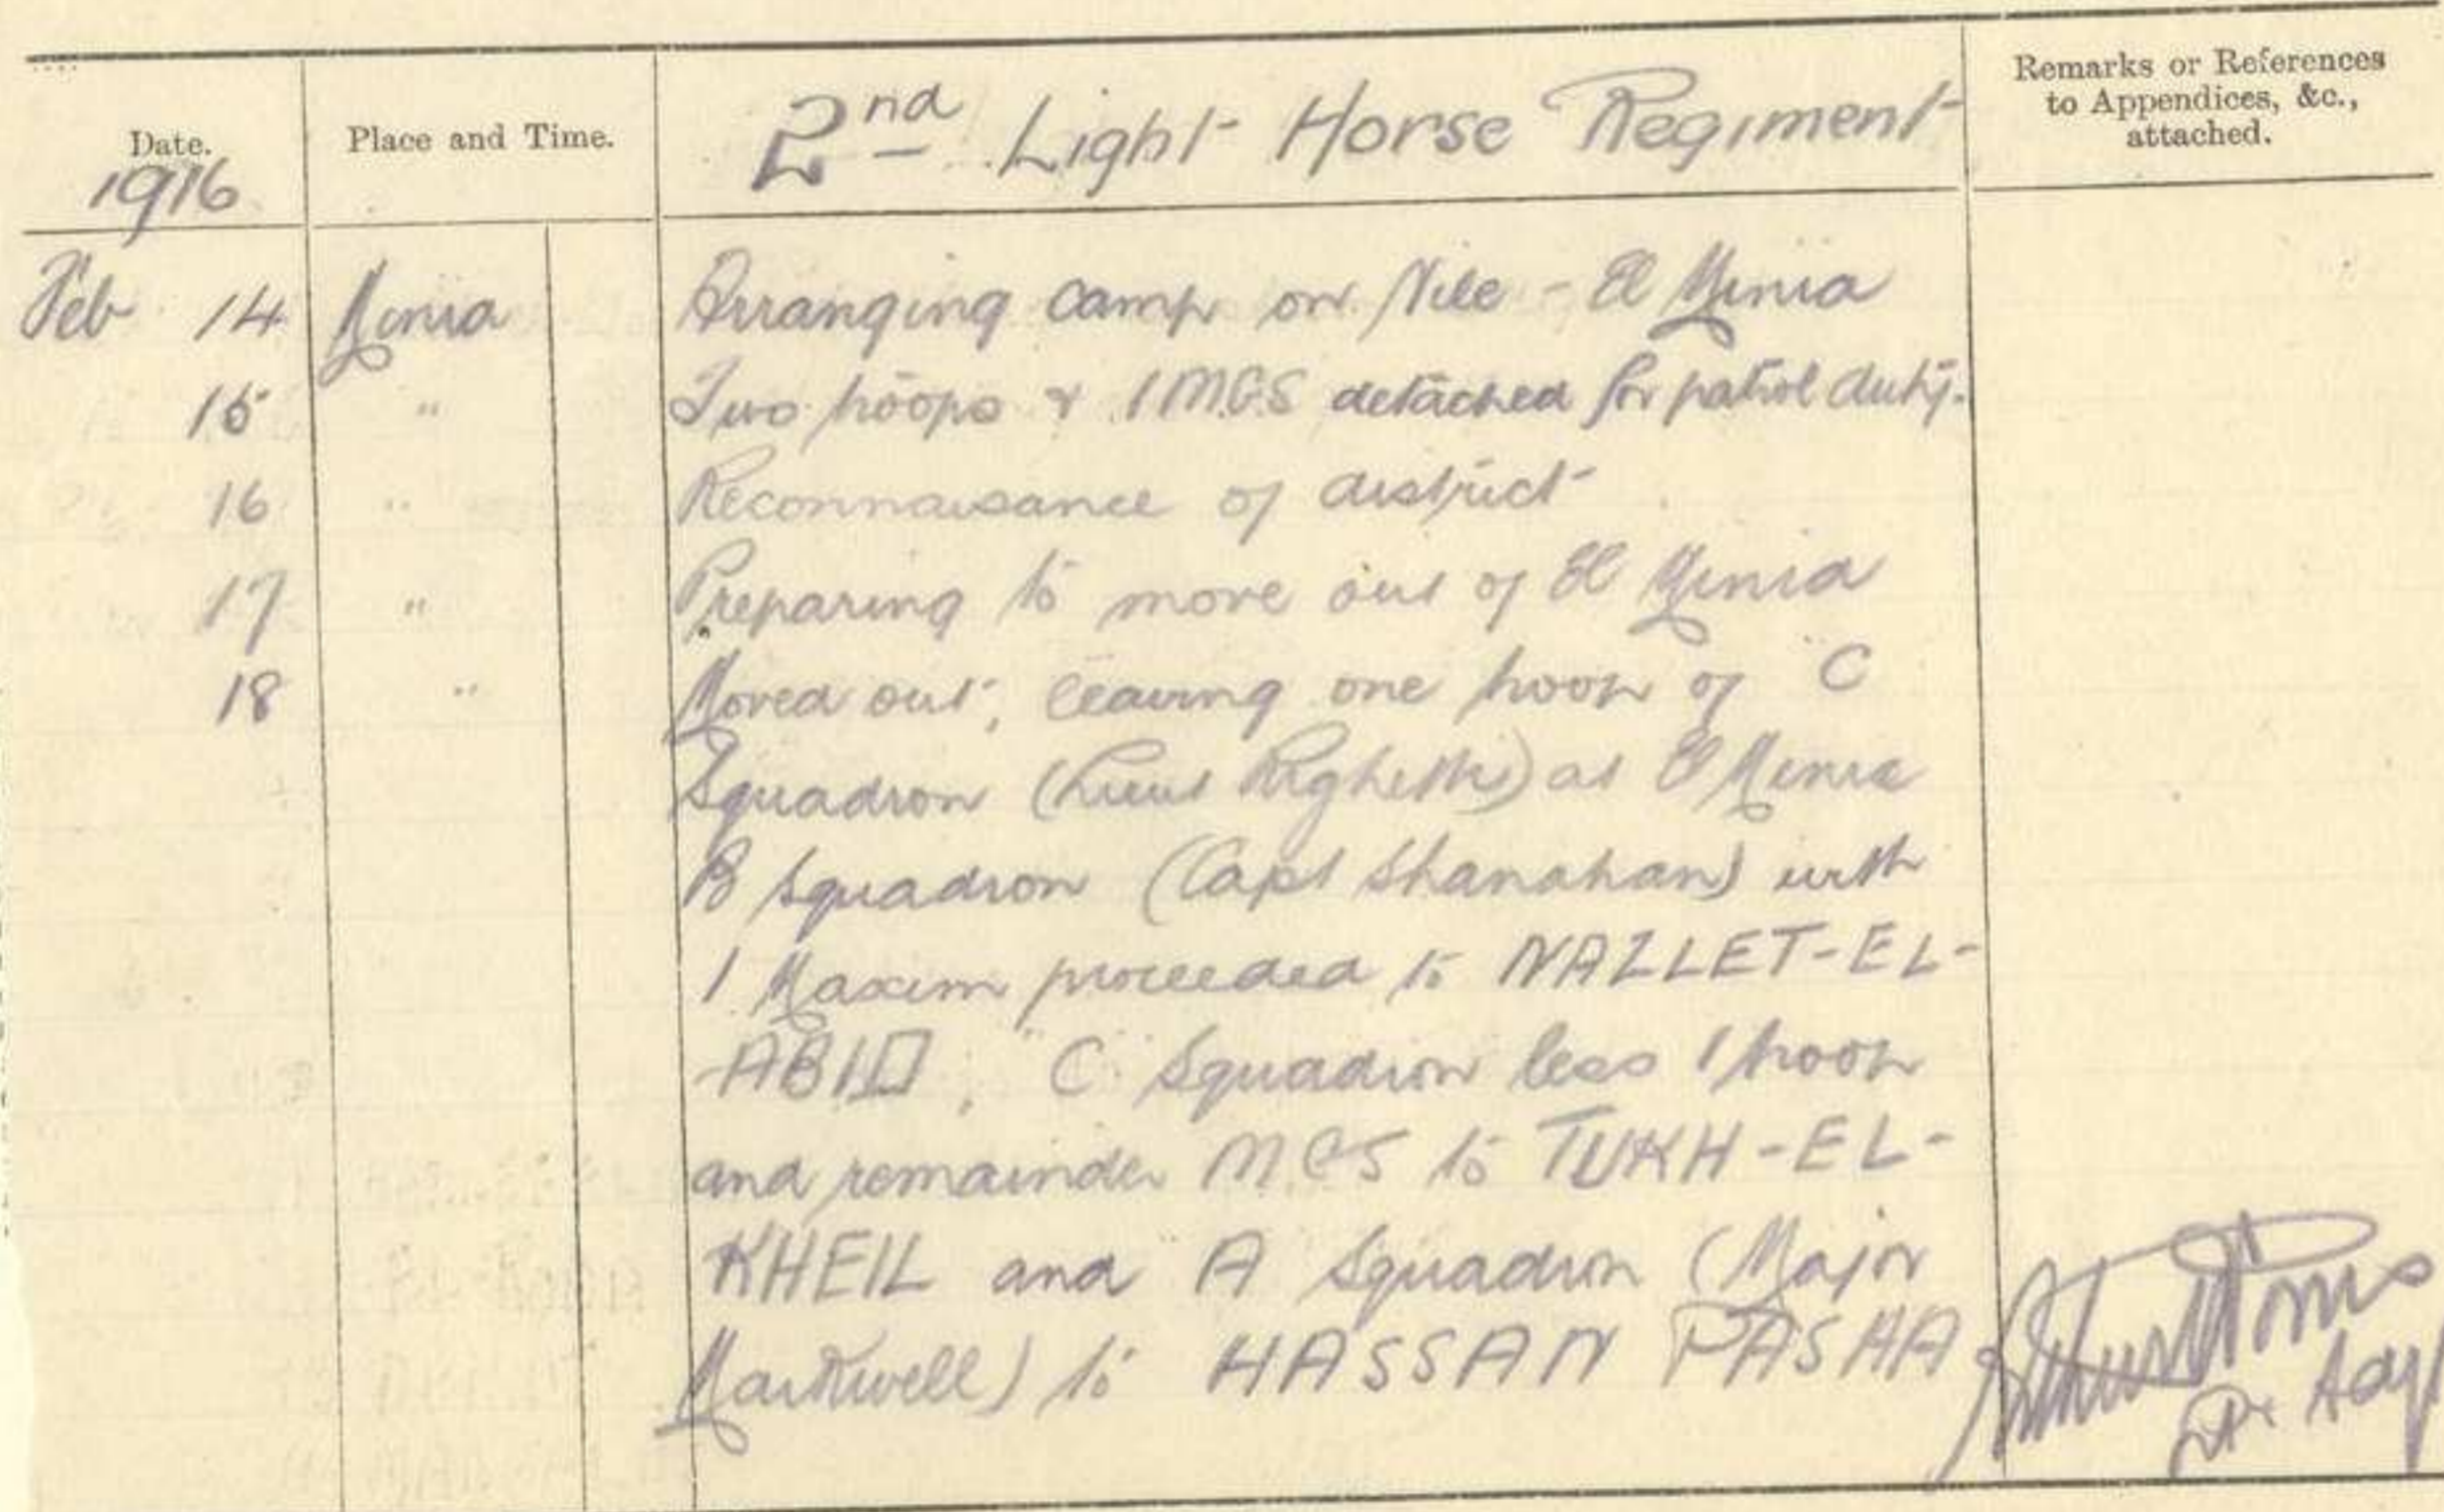 Date. Place and Time. 2nd Light Horse Regiment Remarks or References
to Appendices, &c.,
attached.
1916
Feb 14 Minia Arranging camp on Nile - El Minia
15 " Two troops & 1 M.G.S detached for patrol duty.
16 " Reconnaisance of district
17 " Preparing to move out of El Minia
18 " Moved out, leaving one troop of "C
Squadron (Lieut Righetti) at El Minia
B Squadron (Capt Shanahan) with
1 Maxim proceeded to NAZLET-EL-
ABID, "C" Squadron less 1 troop
and remainder M.G.S to TUKH-EL-
KHEIL and "A Squadron (Major
Markwell) to HASSAN PASHA